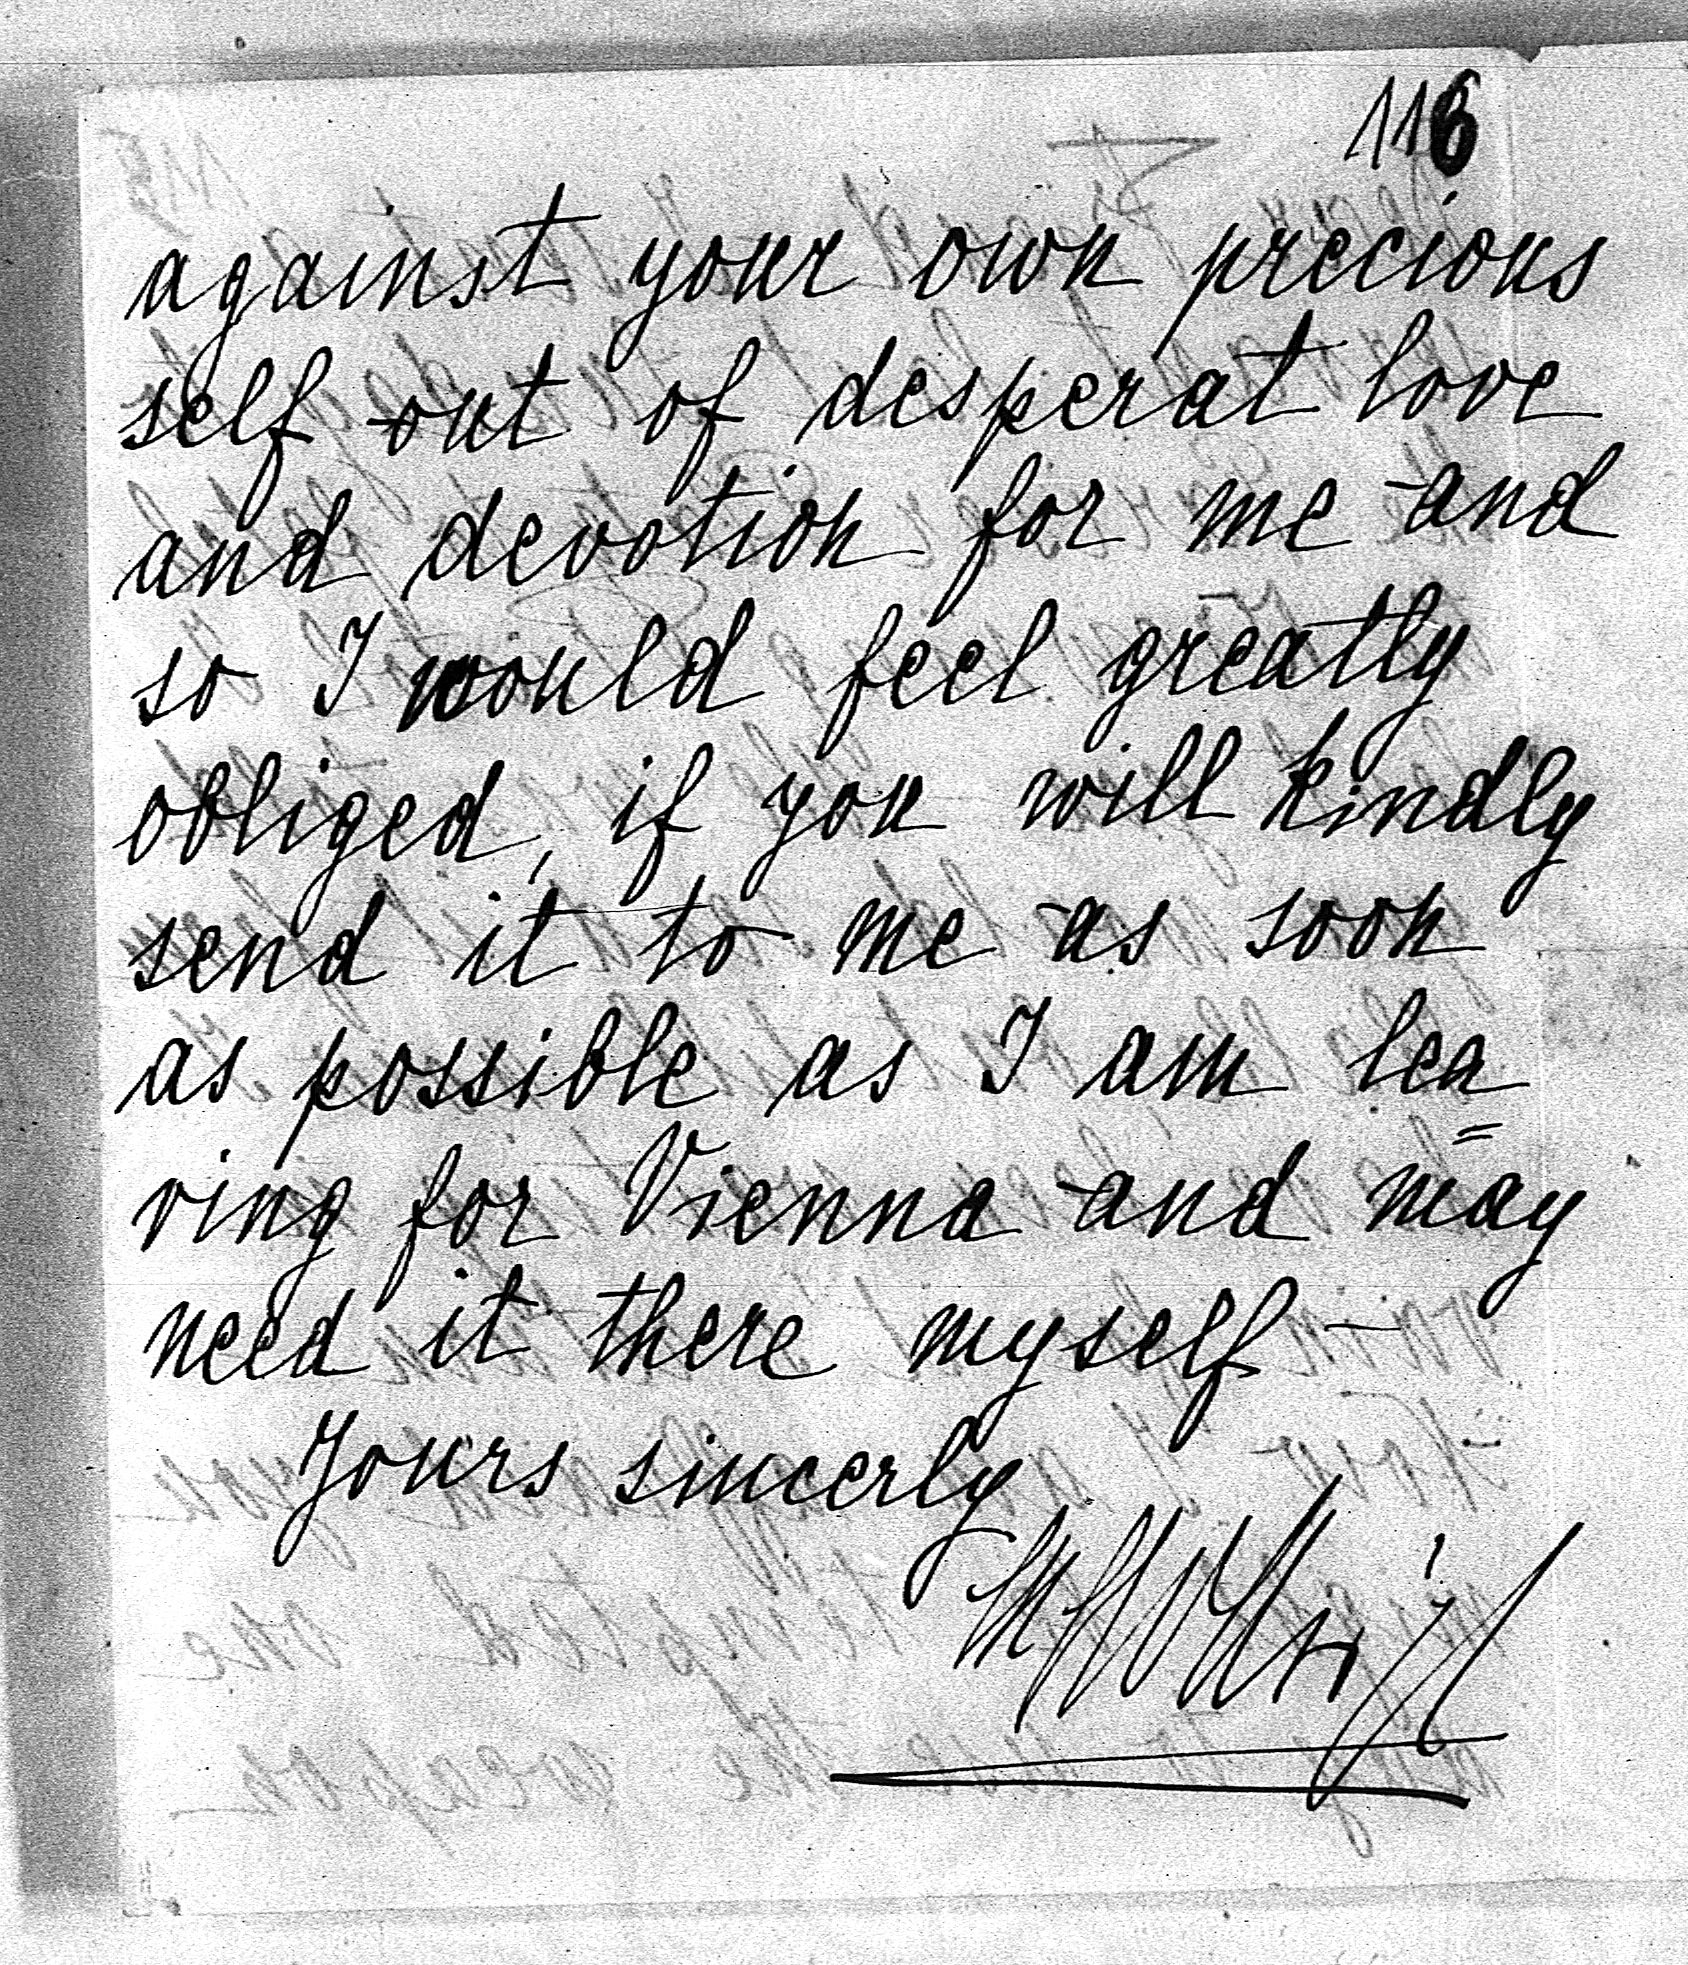 116
against your own precious
self out of desperat love
and devotion for me and
so I would feel greatly
obliged, if you will kindly
send it to me as soon
as possible as I am lea=
ving for Vienna and may
need it there myself —
Yours sincerly